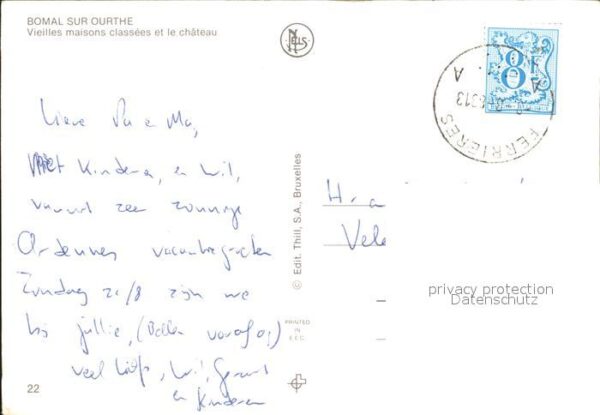 BOMAL SUR OURTHE
Vieilles maisons classées et le château
NELS
Lieve Pa e Ma,
Met Kinderen, en Wil,
vanuit zeer zonnige
Ardennen vacantiegroeten
Zondag 21/8 zijn we
bij jullie, (Bellen vooraf op)
veel liefs, Wil, Gerard
en Kinderen
22
© Edit. Thill, S.A., Bruxelles
PRINTED
IN
E.E.C.
8F
FERRIERES
A
13
H
Vele
privacy protection
Datenschutz